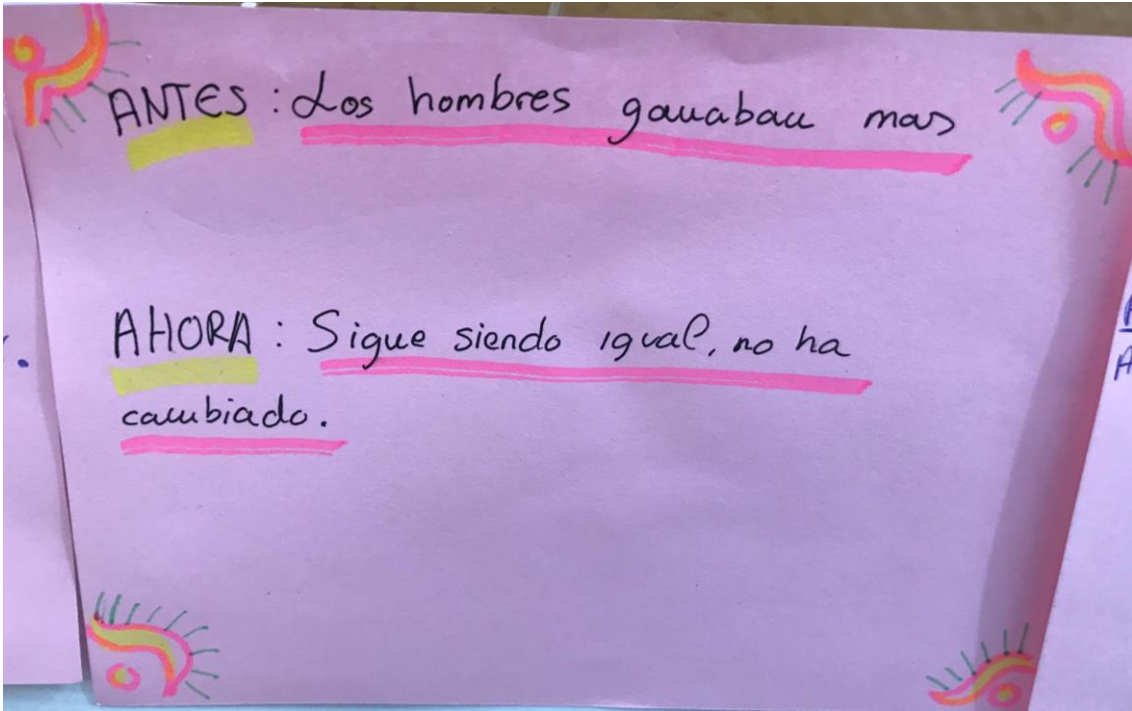 ANTES : Los hombres ganaban mas
AHORA : Sigue siendo igual, no ha
cambiado.